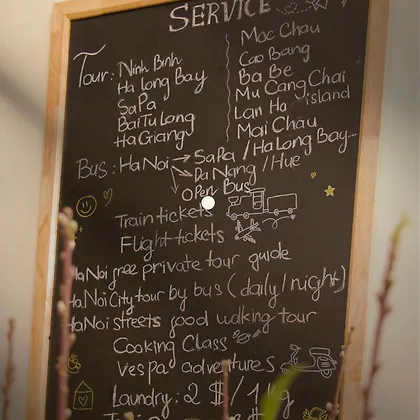 SERVICE
Tour: Ninh Binh
Ha Long Bay
SaPa
BaiTuLong
HaGiang
Moc Chau
Cao Bang
Ba Be
Mu Cang Chai
Lan Ha island
Mai Chau
Bus: HaNoi → SaPa / HaLong Bay...
Da Nang / Hue
Open Bus
Train tickets
Flight tickets
HaNoi free private tour guide
HaNoi City tour by bus (daily / night)
HaNoi streets food walking tour
Cooking Class
Vespa adventures
Laundry: 2 $ / 1 kg